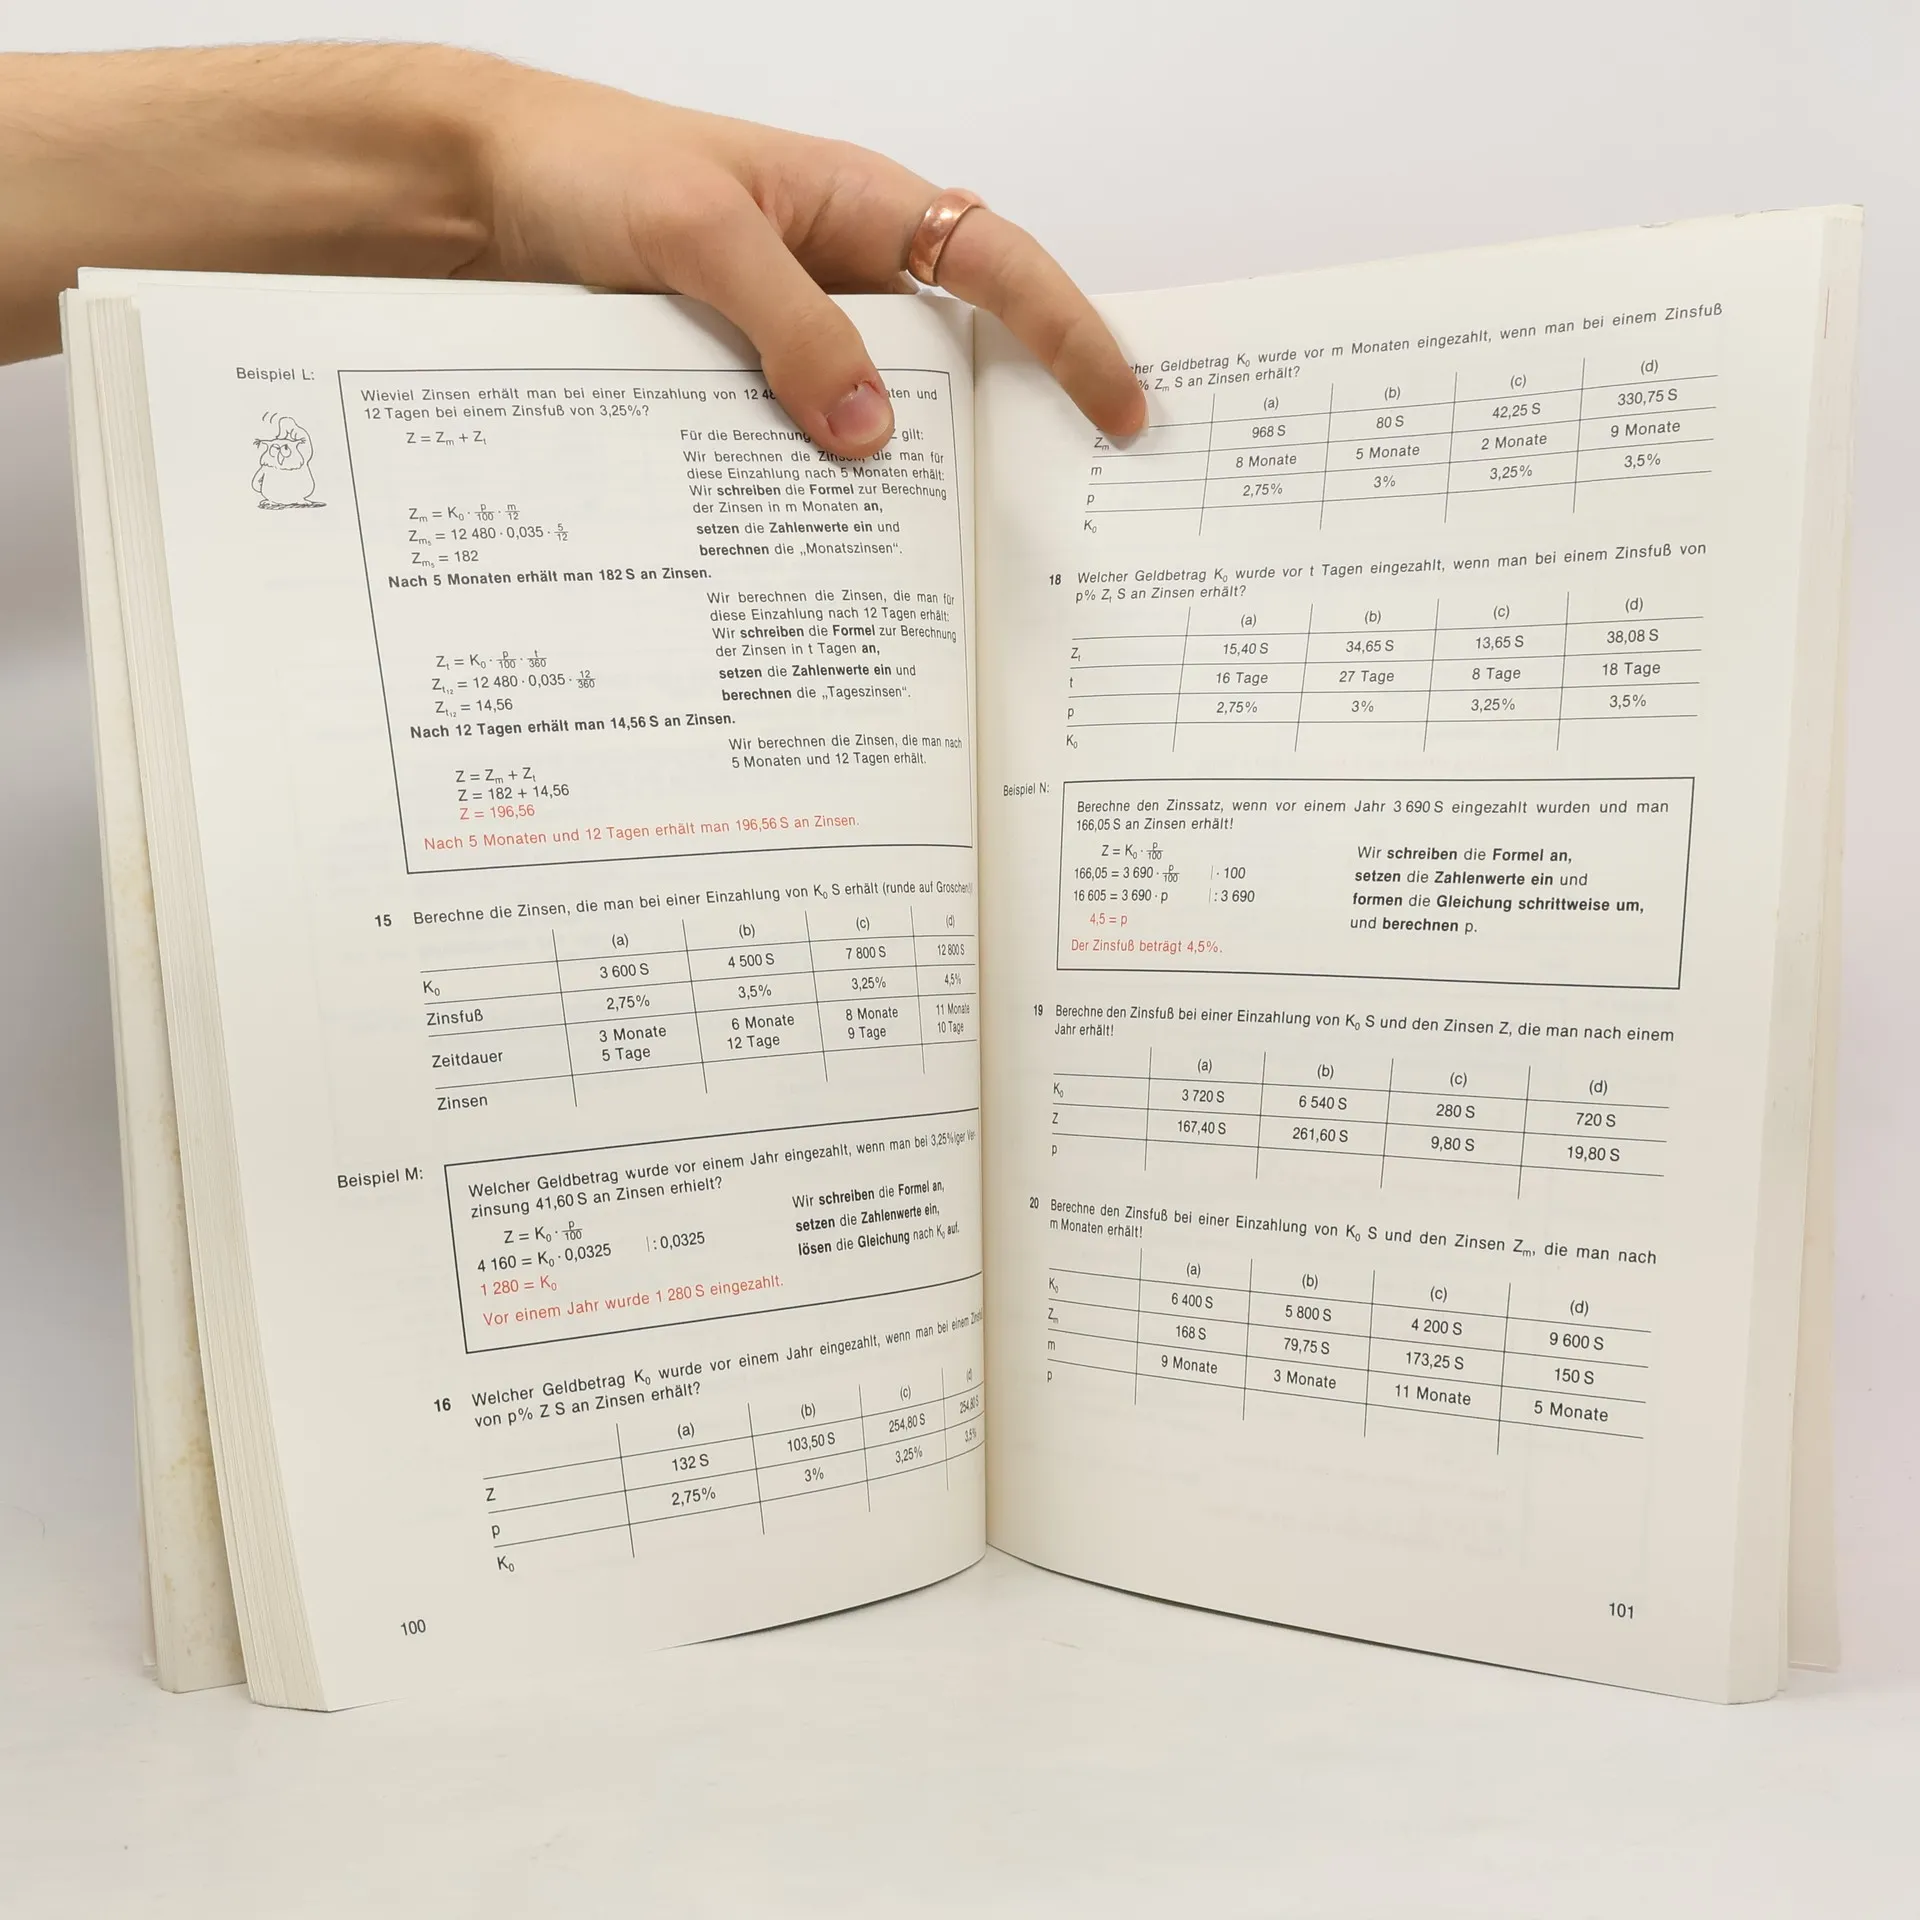 Beispiel L:
Wieviel Zinsen erhält man bei einer Einzahlung von 12 48 und
12 Tagen bei einem Zinsfuß von 3,25%?
Z = Zm + Zt
Für die Berechnung Z gilt:
Wir berechnen die Zinsen, die man für
diese Einzahlung nach 5 Monaten erhält:
Wir schreiben die Formel zur Berechnung
der Zinsen in m Monaten an,
setzen die Zahlenwerte ein und
berechnen die „Monatszinsen“.
Zm = K0 · p/100 · m/12
Zm5 = 12 480 · 0,035 · 5/12
Zm5 = 182
Nach 5 Monaten erhält man 182 S an Zinsen.
Wir berechnen die Zinsen, die man für
diese Einzahlung nach 12 Tagen erhält:
Wir schreiben die Formel zur Berechnung
der Zinsen in t Tagen an,
setzen die Zahlenwerte ein und
berechnen die „Tageszinsen“.
Zt = K0 · p/100 · t/360
Zt12 = 12 480 · 0,035 · 12/360
Zt12 = 14,56
Nach 12 Tagen erhält man 14,56 S an Zinsen.
Wir berechnen die Zinsen, die man nach
5 Monaten und 12 Tagen erhält.
Z = Zm + Zt
Z = 182 + 14,56
Z = 196,56
Nach 5 Monaten und 12 Tagen erhält man 196,56 S an Zinsen.
15 Berechne die Zinsen, die man bei einer Einzahlung von K0 S erhält (runde auf Groschen)!
(a) (b) (c) (d)
K0 3 600 S 4 500 S 7 800 S 12 800 S
Zinsfuß 2,75% 3,5% 3,25% 4,5%
Zeitdauer 3 Monate 6 Monate 8 Monate 11 Monate
5 Tage 12 Tage 9 Tage 10 Tage
Zinsen
Beispiel M:
Welcher Geldbetrag wurde vor einem Jahr eingezahlt, wenn man bei 3,25%iger Ver-
zinsung 41,60 S an Zinsen erhielt?
Z = K0 · p/100
4 160 = K0 · 0,0325 | : 0,0325
1 280 = K0
Wir schreiben die Formel an,
setzen die Zahlenwerte ein,
lösen die Gleichung nach K0 auf.
Vor einem Jahr wurde 1 280 S eingezahlt.
16 Welcher Geldbetrag K0 wurde vor einem Jahr eingezahlt, wenn man bei einem
von p% Z S an Zinsen erhält?
(a) (b) (c) (d)
Z 132 S 103,50 S 254,80 S 254,80 S
p 2,75% 3% 3,25% 3,5%
K0
100
Geldbetrag K0 wurde vor m Monaten eingezahlt, wenn man bei einem Zinsfuß
% Zm S an Zinsen erhält?
(a) (b) (c) (d)
Zm 968 S 80 S 42,25 S 330,75 S
m 8 Monate 5 Monate 2 Monate 9 Monate
p 2,75% 3% 3,25% 3,5%
K0
18 Welcher Geldbetrag K0 wurde vor t Tagen eingezahlt, wenn man bei einem Zinsfuß von
p% Zt S an Zinsen erhält?
(a) (b) (c) (d)
Zt 15,40 S 34,65 S 13,65 S 38,08 S
t 16 Tage 27 Tage 8 Tage 18 Tage
p 2,75% 3% 3,25% 3,5%
K0
Beispiel N:
Berechne den Zinssatz, wenn vor einem Jahr 3 690 S eingezahlt wurden und man
166,05 S an Zinsen erhält!
Z = K0 · p/100
166,05 = 3 690 · p/100 | · 100
16 605 = 3 690 · p | : 3 690
4,5 = p
Der Zinsfuß beträgt 4,5%.
Wir schreiben die Formel an,
setzen die Zahlenwerte ein und
formen die Gleichung schrittweise um,
und berechnen p.
19 Berechne den Zinsfuß bei einer Einzahlung von K0 S und den Zinsen Z, die man nach einem
Jahr erhält!
(a) (b) (c) (d)
K0 3 720 S 6 540 S 280 S 720 S
Z 167,40 S 261,60 S 9,80 S 19,80 S
p
20 Berechne den Zinsfuß bei einer Einzahlung von K0 S und den Zinsen Zm, die man nach
m Monaten erhält!
(a) (b) (c) (d)
K0 6 400 S 5 800 S 4 200 S 9 600 S
Zm 168 S 79,75 S 173,25 S 150 S
m 9 Monate 3 Monate 11 Monate 5 Monate
p
101